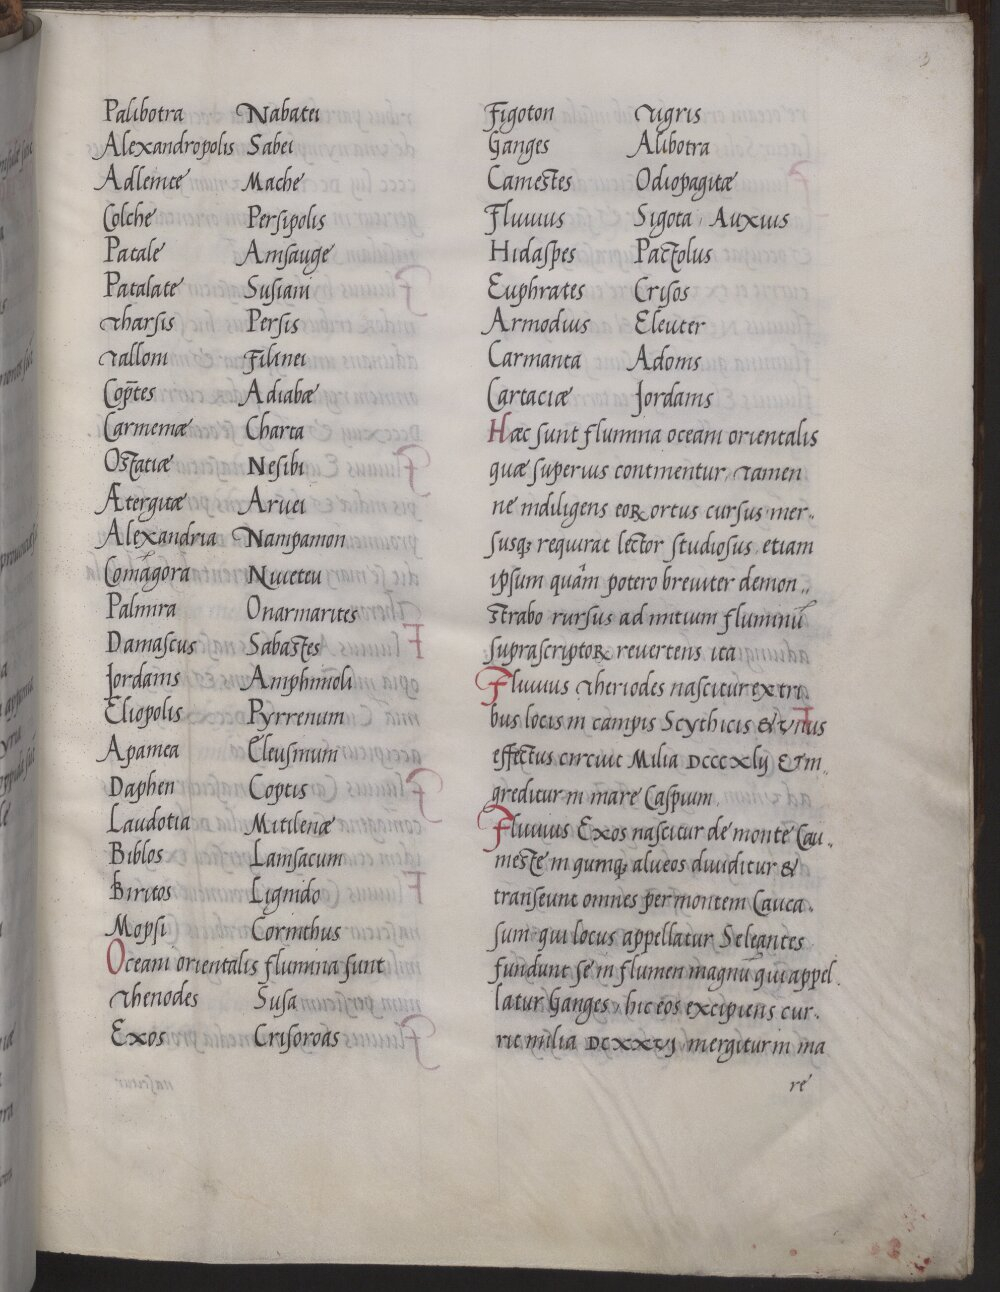 Palibotra Nabatei
Alexandropolis Sabei
Adlemte Mache
Colche Persipolis
Patale Amsauge
Patalate Susiani
Tharsis Persis
Talloni Filinei
Cop̄tes Adiabæ
Carmemæ Charta
Ostatiæ Nesibi
Ætergitæ Aruei
Alexandria Nampamon
Comagora Niuceteu
Palmira Onarmarites
Damascus Sabastes
Jordanis Amphimoli
Eliopolis Pyrrenum
Apamea Eleusinum
Daphen Coptis
Laudotia Mitilenæ
Biblos Lamsacum
Biritos Lignido
Mopsi Corinthus
Oceani orientalis flumina sunt
Thenodes Susa
Exos Crisoroas
Figoton Tigris
Ganges Alibotra
Camestes Odiopagitæ
Fluuius Sigota, Auxius
Hidaspes Pactolus
Euphrates Crisos
Armodius Eleuter
Carmanta Adonis
Cartaciæ Jordanis
Hæc sunt flumina oceani orientalis
quæ superius continentur, tamen
ne indiligens eoꝝ ortus cursus mer-
susqꝫ requirat lector studiosus, etiam
ipsum quam potero breuiter demon-
strabo rursus ad initium fluminū
suprascriptoꝝ reuertens ita
Fluuius Theriodes nascitur ex tri
bus locis in campis Scythicis & vnus
effectus circuit Milia DCCCXLIJ ET in-
greditur in mare Caspium.
Fluuius Exos nascitur de monte Cau-
meste in qumqꝫ alueos diuiditur &
transeunt omnes per montem Cauca-
sum qui locus appellatur Seleantes
fundunt se in flumen magnū qui appel-
latur Ganges, hic eos excipiens cur-
rit milia DCXXVJ mergitur in ma
re